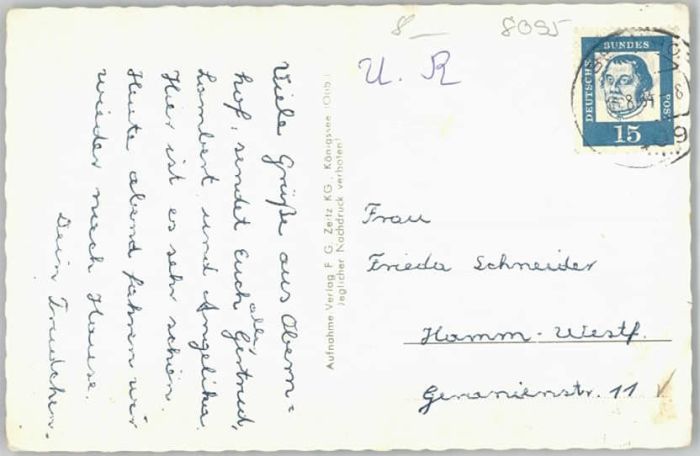 8_ 8095
U. R
DEUTSCHE BUNDESPOST
15
Viele Grüße aus Obern=
hof, sendet Euch allen, Gertrud,
Lambert und Angelika.
Hier ist es sehr schön.
Heute abend fahren wir
wieder nach Hause.
Dein Trudchen.
Aufnahme Verlag F. G. Zeitz KG., Königssee (Obb.)
Jeglicher Nachdruck verboten!
Frau
Frieda Schneider
Hamm-Westf.
Geranienstr. 11